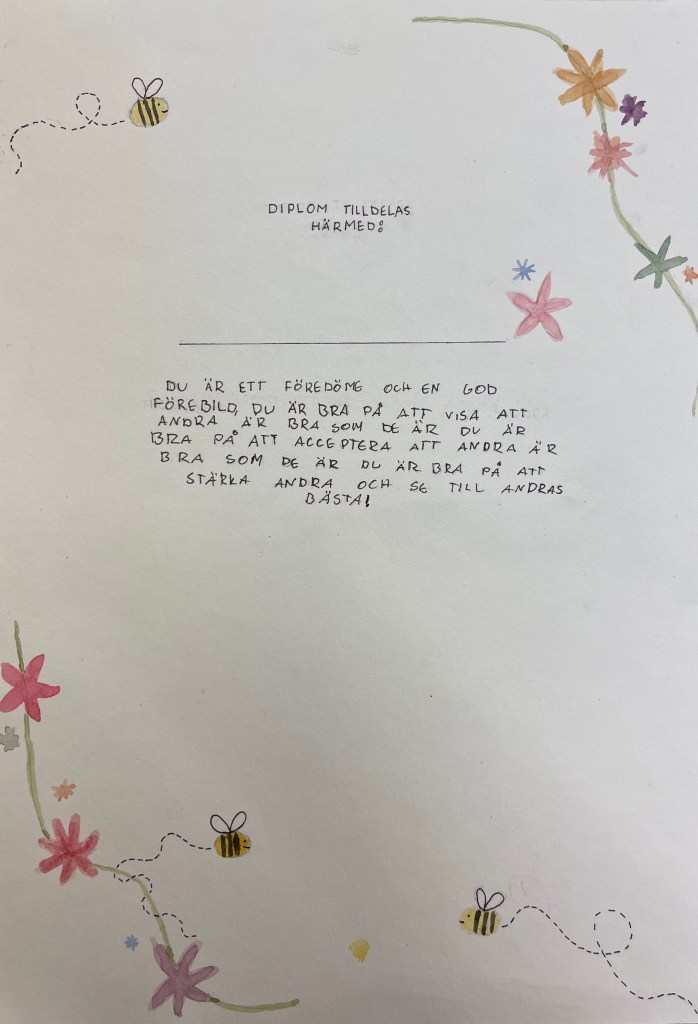 DIPLOM TILLDELAS
HÄRMED:
DU ÄR ETT FÖREDÖME OCH EN GOD
FÖREBILD, DU ÄR BRA PÅ ATT VISA ATT
ANDRA ÄR BRA SOM DE ÄR DU ÄR
BRA PÅ ATT ACCEPTERA ATT ANDRA ÄR
BRA SOM DE ÄR DU ÄR BRA PÅ ATT
STÄRKA ANDRA OCH SE TILL ANDRAS
BÄSTA!